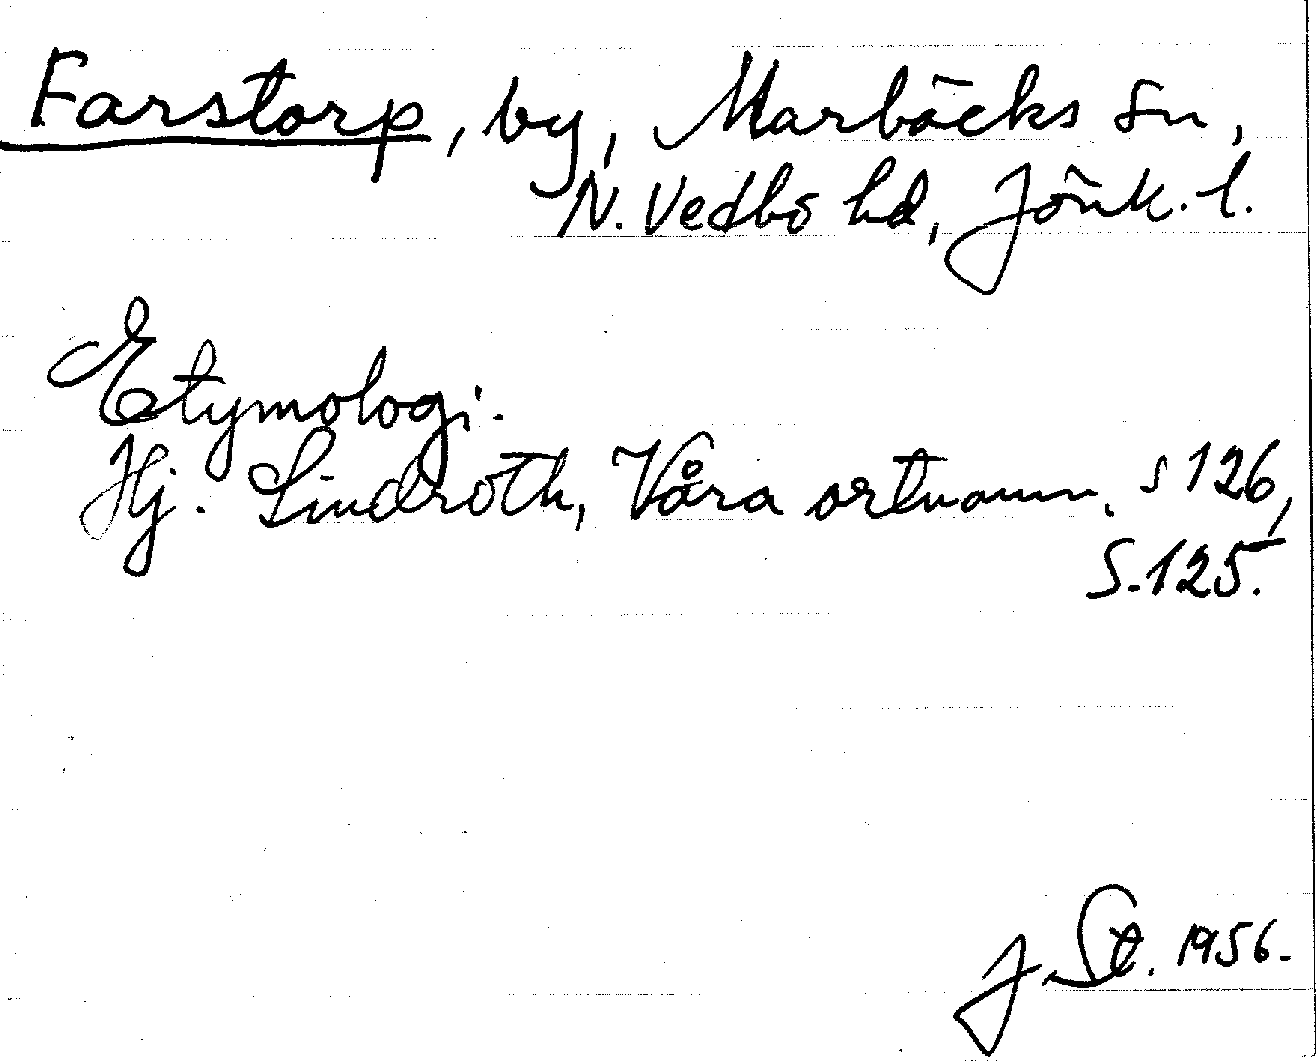 Farstorp, by, Marbäcks sn,
N. Vedbo hd, Jönk. l.
Etymologi.
Hj. Lindroth, Våra ortnamn. s 126,
S. 125.
J. St. 1956.